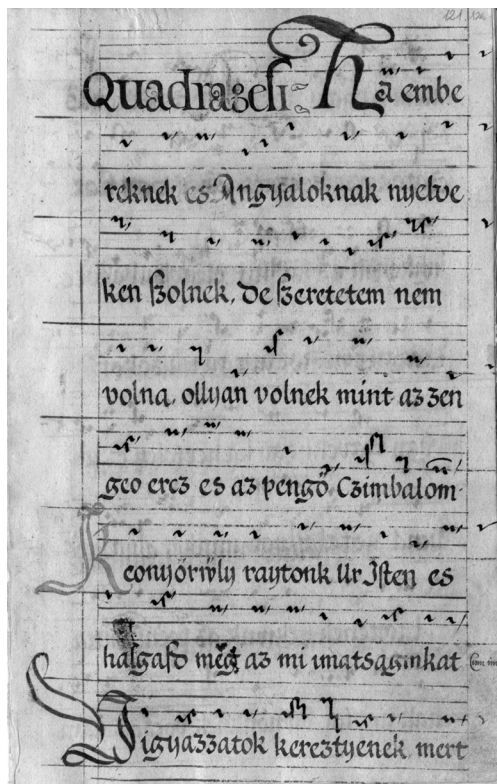 121
Quadragesi= Ha embe
reknek es Angyaloknak nyelve
ken szolnek, de szeretetem nem
volna, ollyan volnek mint az zen
geo ercz es az pengö Czimbalom.
Keonyörüly raytonk Ur Isten es
halgasd meg az mi imatsaginkat
Vigyazzatok kereztyenek mert